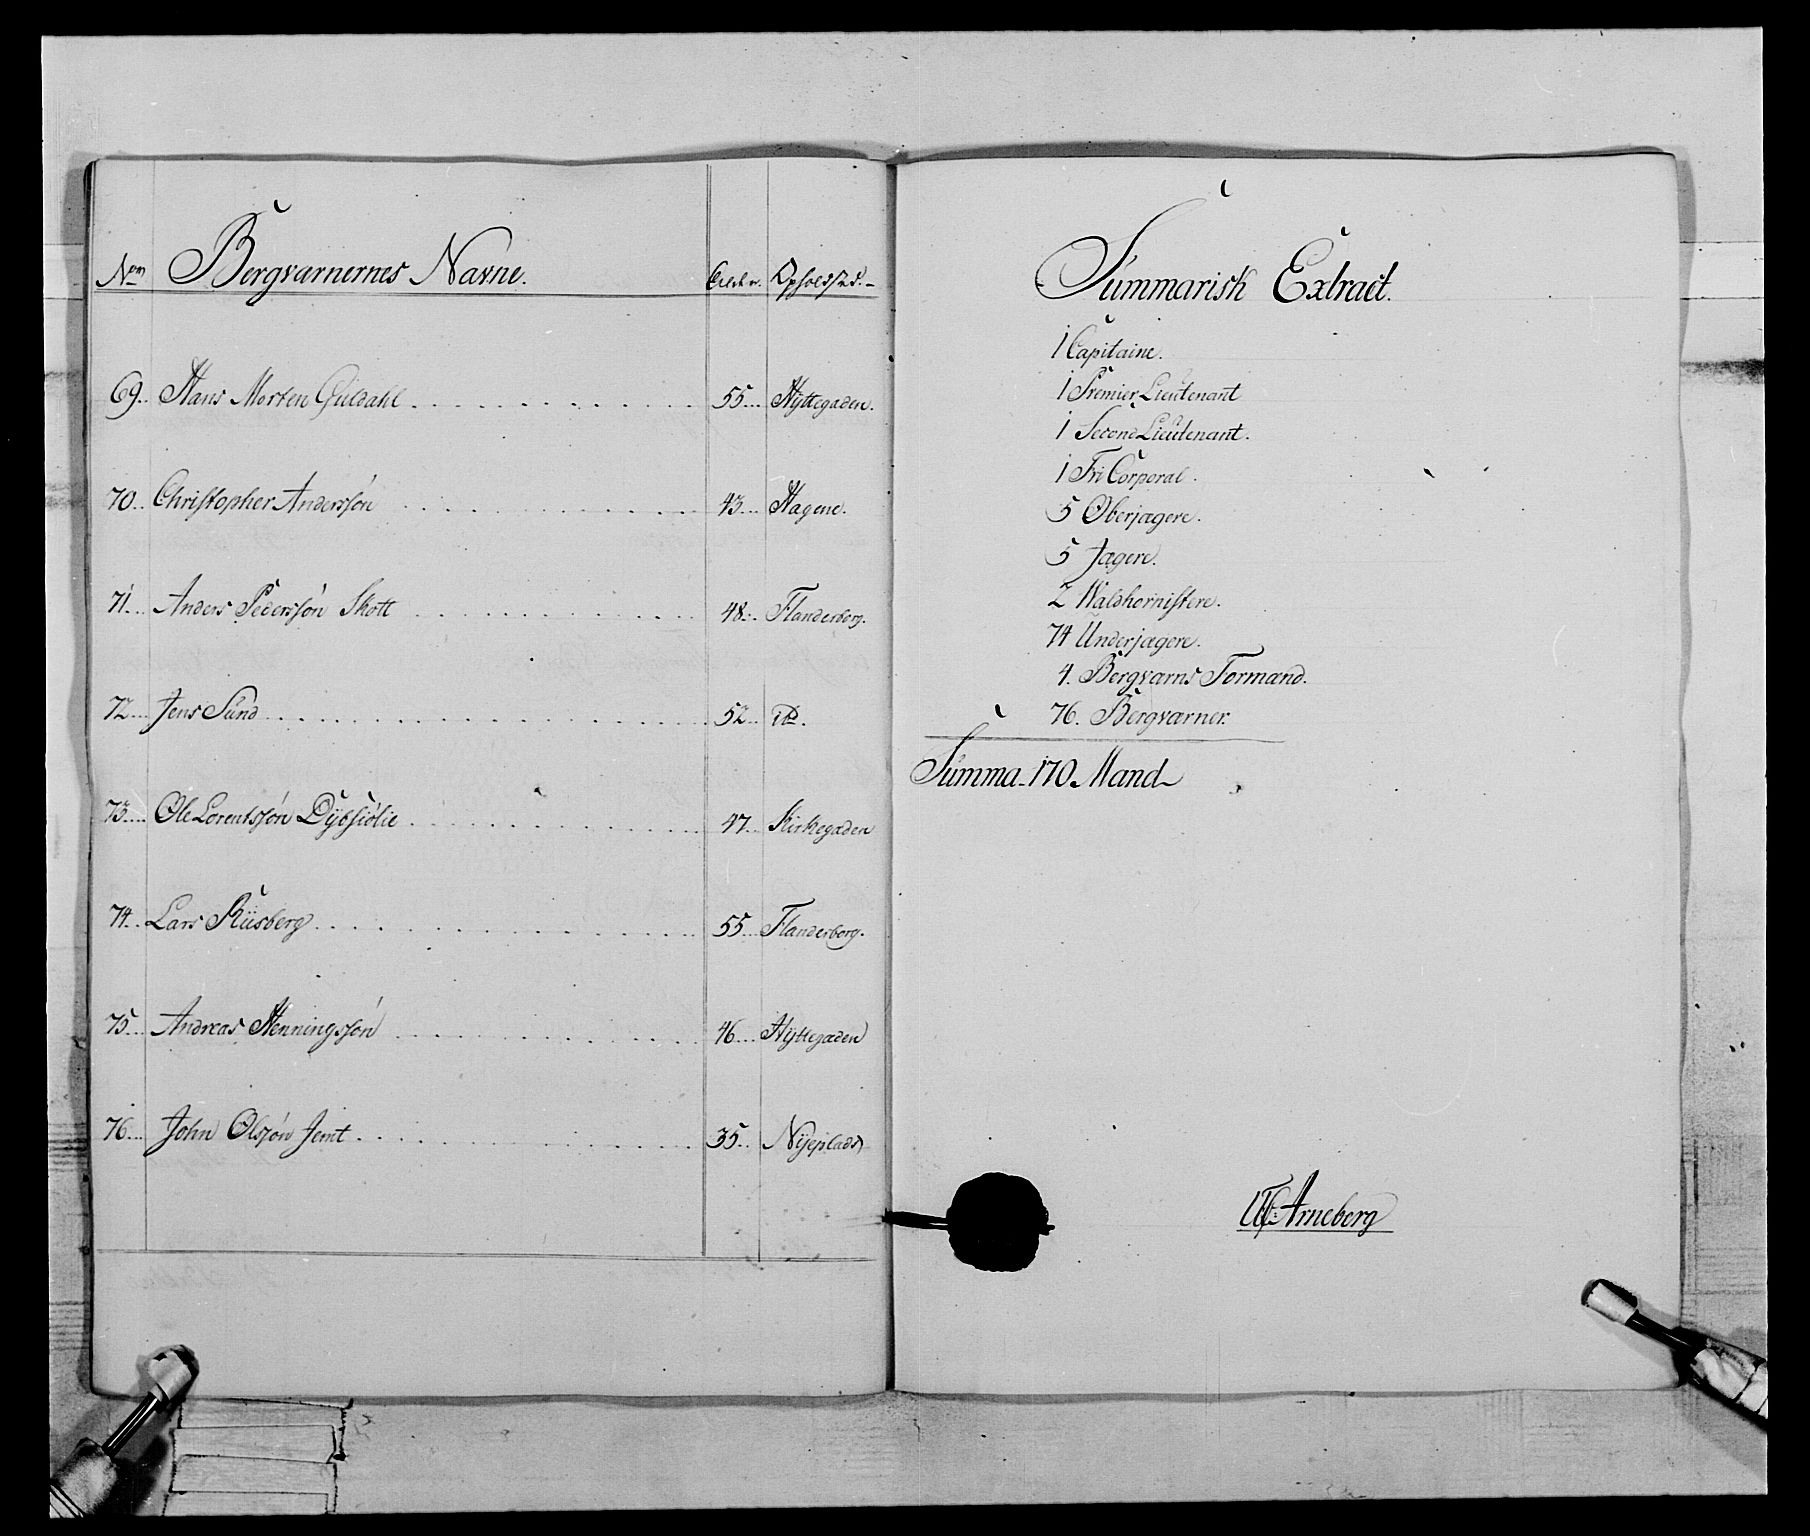 No Bergværnernes Navne. Alder. Opholdsted.
69. Hans Morten Guldahl 55 Hÿttegaden.
70. Christopher Anderssøn 43 Hagene.
71. Anders Pederssøn Skott 48 Flanderborg.
72. Jens Sund 52 do.
73. Ole Lorentssøn Dÿbsiølie 47 Kirkegaden
74. Lars Riisberg 55 Flanderborg.
75. Andreas Henningssøn 46 Hÿttegaden
76. John Olssøn Jemt 35 Nÿeplads
Summarisk Extract.
1 Capitaine.
1 Premier Lieutenant
1 Second Lieutenant.
1 Fri Corporal.
5 Oberjægere.
5 Jægere.
2 Waldhornistere.
74 Underjægere.
4. Bergværns Formænd.
76. Bergværner.
Summa 170 Mand
Arneberg